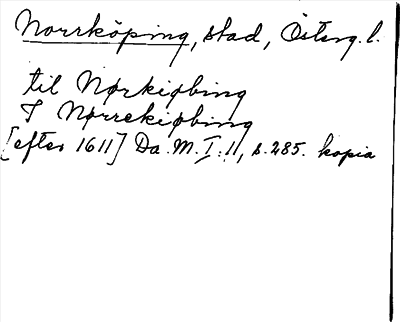 Norrköping, stad, Österg. l.
til Nørkiøbing
I Nørrekiøbing
[efter 1611] Da. M. I: 11, s. 285. kopia